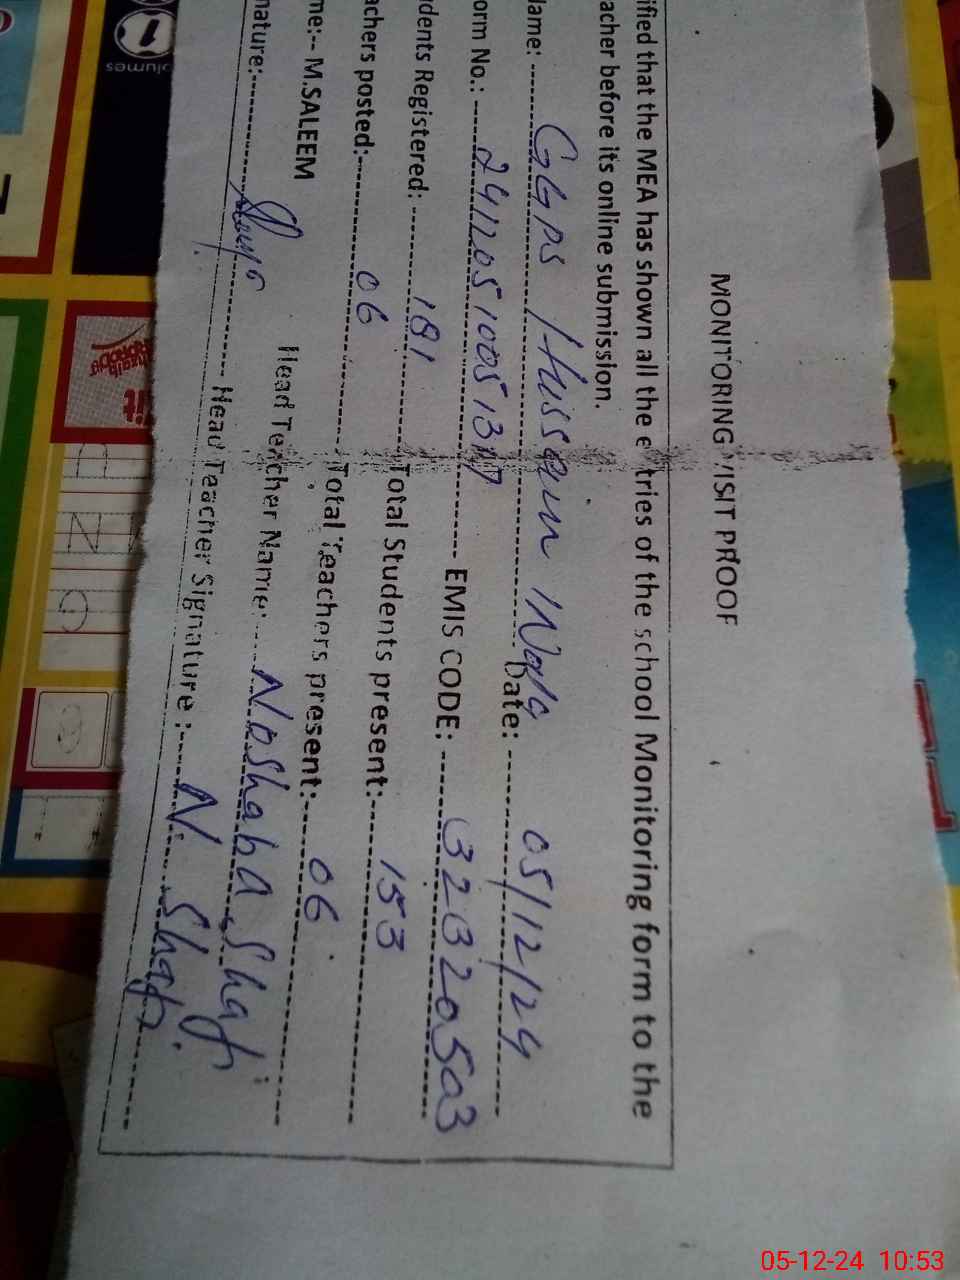 MONITORING VISIT PROOF
ified that the MEA has shown all the e tries of the school Monitoring form to the
acher before its online submission.
lame: GGPS Hussain Wala Date: 05/12/24
orm No.: EMIS CODE: 32320503
dents Registered: 181 Total Students present:- 153
achers posted:- 06 Total Teachers present:- 06
me:- M.SALEEM Head Teacher Name: Noshaba Shafi
nature:- Head Teacher Signature :- N. Shafi
olumes
05-12-24 10:53